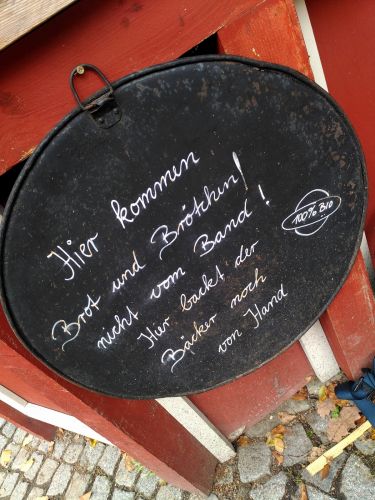 Hier kommen
Brot und Brötchen
nicht vom Band!
Hier backt der
Bäcker noch
von Hand
100% BIO